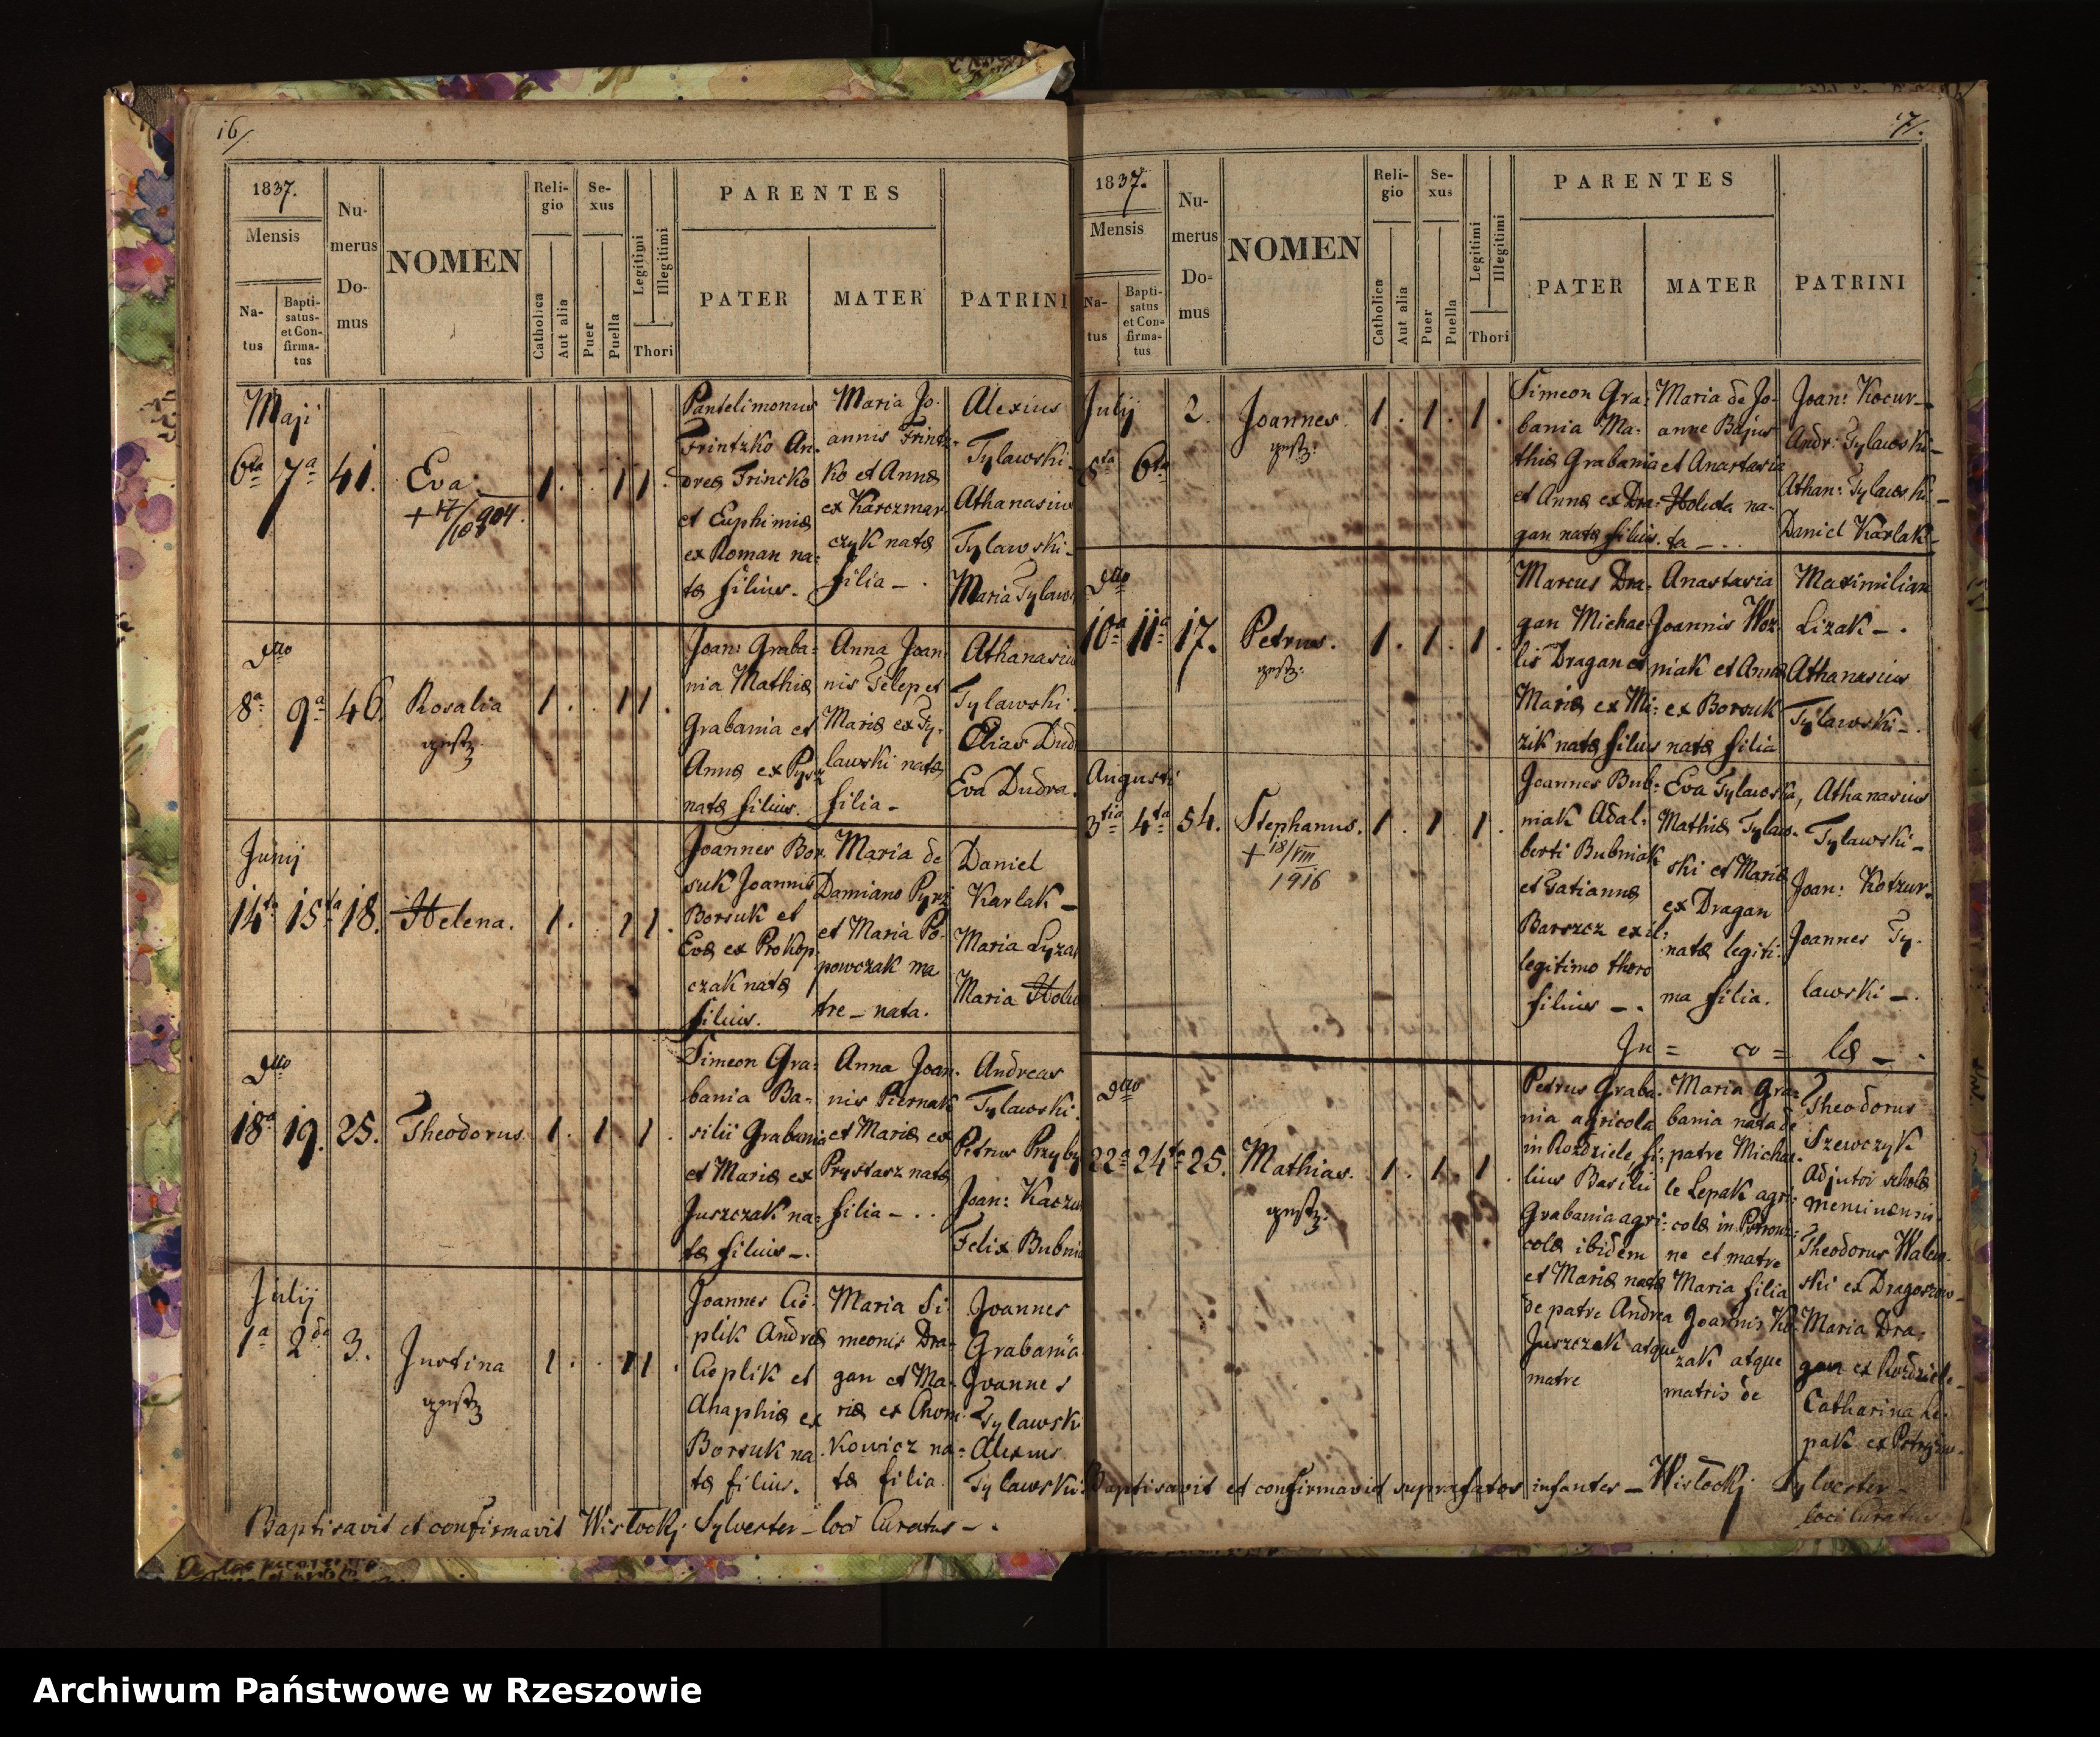 16/.
1837.
Mensis
Na-
tus
Bapti-
satus-
et Con-
firma-
tus
Nu-
merus
Do-
mus
NOMEN
Reli-
gio
Catholica
Aut alia
Se-
xus
Puer
Puella
Legitimi
Illegitimi
Thori
PARENTES
PATER
MATER
PATRINI
Maji
6ta 7a 41.
Eva.
+ 17/10 904.
1. 1 1.
Pantelimonus
Trintzko An-
dreæ Trincko
et Euphimiæ
ex Roman na-
tæ filius.
Maria Jo-
annis Trintz-
ko et Annæ
ex Karczmar
czyk natæ
filia -.
Alexius
Tylawski-
Athanasius
Tylawski-
Maria Tylaw
dtto
8a 9a 46.
Rosalia
1. 1 1.
Joan: Graba-
nia Mathiæ
Grabania et
Annæ ex Pyrz
natæ filius.
Anna Joan-
nis Telep et
Mariæ ex Ty-
lawski natæ
filia -
Athanasiu
Tylawski.
Elias Dud
Eva Dudra.
Junij
14ta 15ta 18.
Helena.
1. 1 1.
Joannes Bor-
suk Joannis
Borsuk et
Evæ ex Prokop-
czak natæ
filius.
Maria de
Damiano Pyrz
et Maria Po-
powczak ma
tre - nata.
Daniel
Karlak -
Maria Lyzak
Maria Holu
dtto
18a 19. 25.
Theodorus.
1. 1 1.
Simeon Gra-
bania Ba-
silii Grabania
et Mariæ ex
Juszczak na-
tæ filius -.
Anna Joan-
nis Piernak
et Mariæ ex
Prystasz natæ
filia - . .
Andreas
Tylawski.
Petrus Przyby
Joan: Kaczu
Felix Bubnia
Julij
1a 2da 3.
Justina
1. 1 1.
Joannes Cio-
plik Andreæ
Cioplik et
Ahaphiæ ex
Borsuk na-
tæ filius.
Maria Si-
meonis Dra-
gan et Ma-
riæ ex Chom-
kowicz na-
tæ filia
Joannes
Grabania
Joannes
Tylawsk
Alexius
Tylawski.
Baptisavit et confirmavit Wisłockj Sylvester - loci Curatus -.
17/.
1837.
Mensis
Na-
tus
Bapti-
satus
et Con-
firma-
tus
Nu-
merus
Do-
mus
NOMEN
Reli-
gio
Catholica
Aut alia
Se-
xus
Puer
Puella
Legitimi
Illegitimi
Thori
PARENTES
PATER
MATER
PATRINI
Julij
5ta 6ta 2.
Joannes.
1. 1. 1.
Simeon Gra-
bania Ma-
thiæ Grabania
et Annæ ex Dra-
gan natæ filius.
Maria de Jo-
anne Bajus
et Anastasia
Holuta na-
ta - . .
Joan: Kocur-
Andr: Tylawski-
Athan: Tylawski-
Daniel Karlak-
dtto
10a 11a 17.
Petrus.
1. 1. 1.
Marcus Dra-
gan Michae-
lis Dragan et
Mariæ ex Mi-
zik natæ filius
Anastasia
Joannis Woz-
niak et Annæ
ex Borsuk
natæ filia
Maximilian
Lizak -.
Athanasius
Tylawski -.
Augusti
3tia 4ta 54.
Stephanus.
+ 18/VIII
1916
1. 1 1.
Joannes Bub-
niak Adal-
berti Bubniak
et Tatiannæ
Barszcz ex il-
legitimo thoro
filius -.
Eva Tylawska,
Mathiæ Tylaw-
ski et Mariæ
ex Dragan
natæ legiti-
ma filia.
Athanasius
Tylawski -
Joan: Kotzur-
Joannes Ty-
lawski -.
In = co = læ -.
dtto
22a 24ta 25.
Mathias.
1. 1. 1.
Petrus Graba-
nia agricola
in Rozdziele, fi-
lius Basilii
Grabania agri-
colæ ibidem
et Mariæ natæ
de patre Andrea
Juszczak atque
matre
Maria Gra-
bania nata de
patre Michae-
le Lepak agri-
colæ in
ne et matre
Maria filia
Joannis Ko-
zak atque
matris de
Theodorus
Szewczyk
Adjutor scholæ
Theodorus Walew-
ski ex Dragaszow-
Maria Dra-
gan ex Rozdziele-
Catharina Le-
pak ex
Baptisavit et confirmavit suprafatos infantes - Wisłockj Sylvester -
loci Curatus
Archiwum Państwowe w Rzeszowie